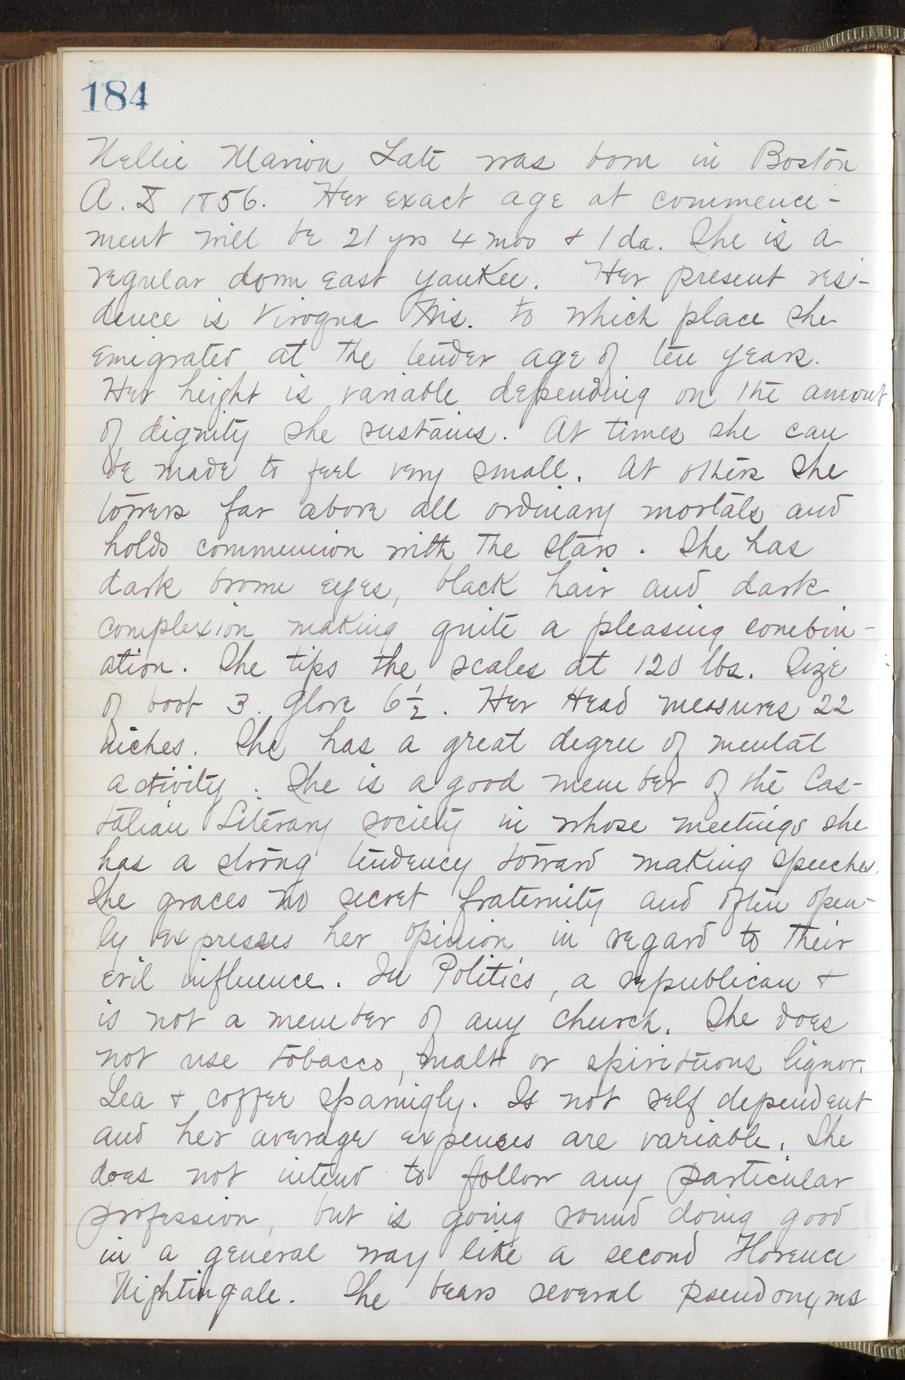 184
Nellie Marion Tate was born in Boston
A.D 1856. Her exact age at commence-
ment will be 21 yrs 4 mos + 1 da. She is a
regular down east yanKee. Her present resi-
dence is Viroqua Wis. to which place she
emigrated at the tender age of ten years.
Her height is variable depending on the amout
of dignity she sustains. At times she can
be made to feel very small. At others she
towers far above all ordinary mortals and
holds communion with the stars. She has
dark brown eyes, black hair and dark
complexion making quite a pleasing combin-
ation. She tips the scales at 120 lbs. Size
of boot 3. Glove 6 1/2. Her Head measures 22
inches. She has a great degree of mental
activity. She is a good member of the Cas-
talian Literary society in whose meetings she
has a strong tendency toward making speeches.
She graces no secret fraternity and often open-
ly expresses her opinion in regard to their
evil influence. In Politics, a republican +
is not a member of any church. She does
not use tobacco, malt or spirituous liquor.
Tea + coffee sparingly. Is not self dependent
and her average expenses are variable. She
does not intend to follow any particular
profession, but is going round doing good
in a general way like a second Florence
Nightingale. She bears several pseudonyms